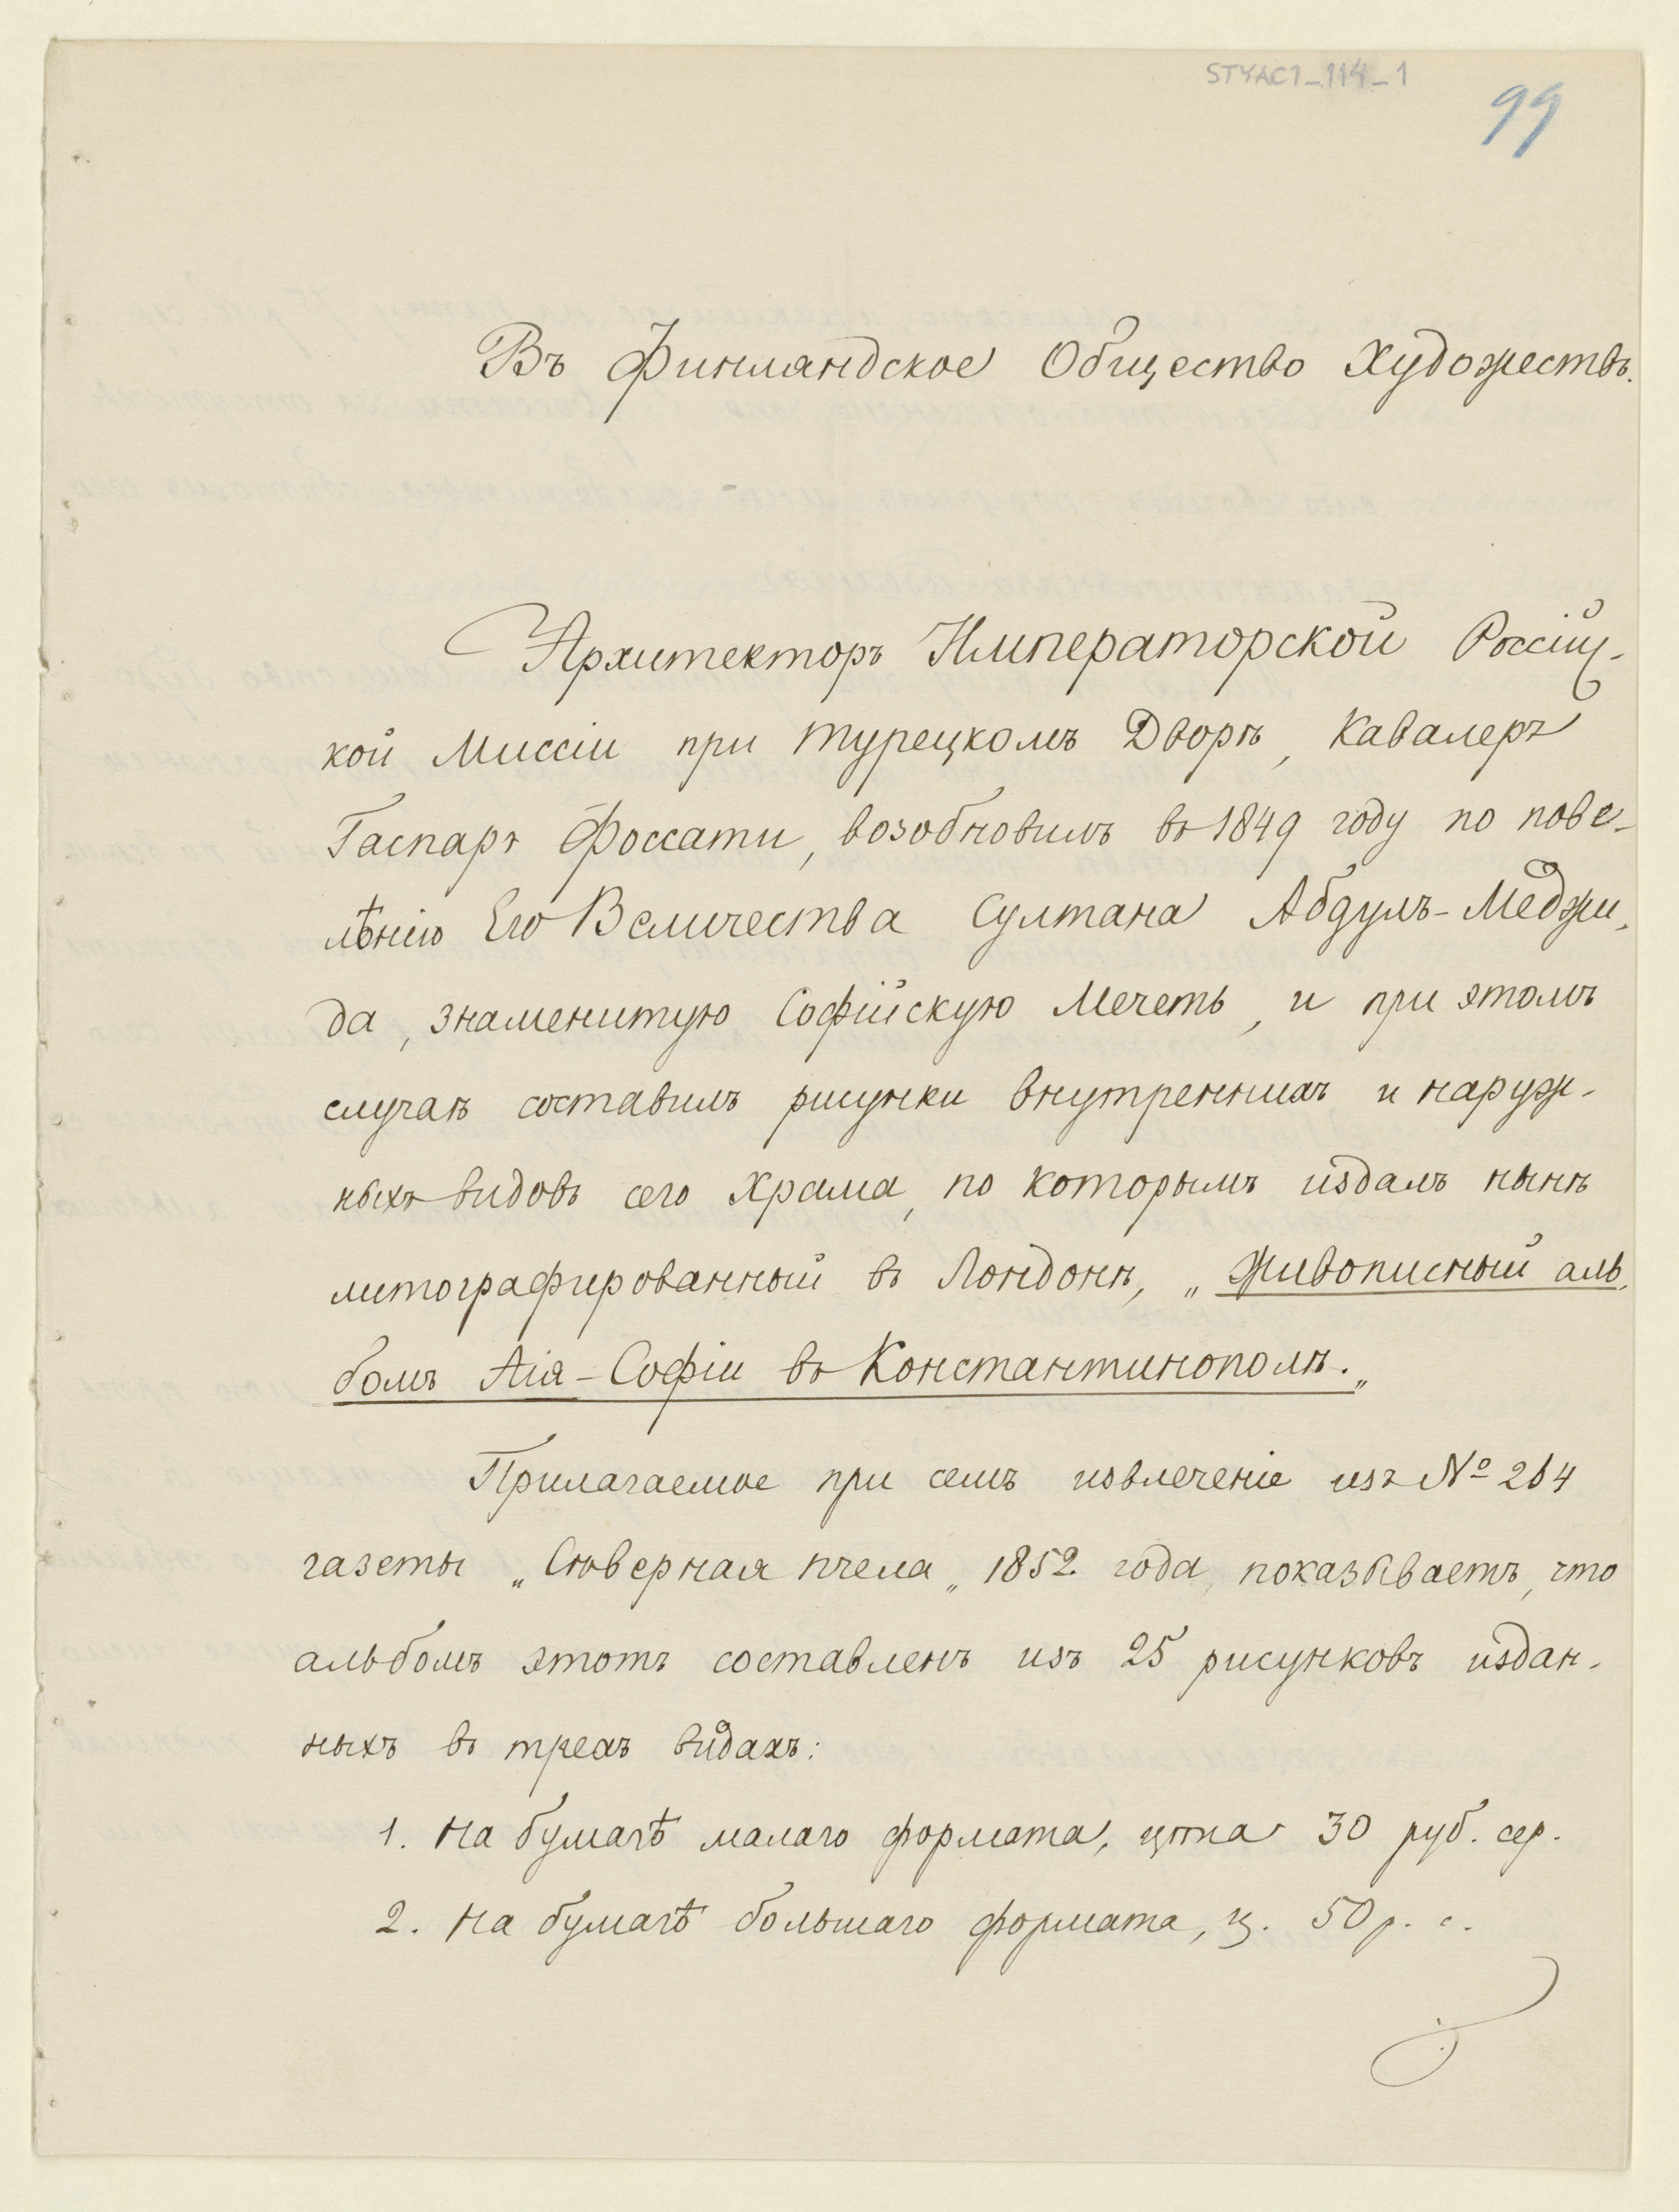 STYAC1_114_1
99
Въ Финляндское Общество Художествъ.
Архитекторъ Императорской Россійс-
кой Миссіи при турецкомъ Дворѣ, Кавалеръ
Гаспаръ Фоссати, возобновилъ въ 1849 году по пове-
лѣнію Его Величества Султана Абдулъ-Меджи-
да, знаменитую Софійскую Мечеть, и при этомъ
случаѣ составилъ рисунки внутреннихъ и наруж-
ныхъ видовъ сего Храма, по которымъ издалъ нынѣ
литографированный въ Лондонѣ, „Живописный аль-
бомъ Аія-Софіи въ Константинополѣ.„
Прилагаемое при семъ извлеченіе изъ № 264
газеты „Сѣверная пчела„ 1852 года, показываетъ, что
альбомъ этотъ составленъ изъ 25 рисунковъ издан-
ныхъ въ трехъ видахъ:
1. На бумагѣ малаго формата, цѣна 30 руб. сер.
2. На бумагѣ большаго формата, ц. 50 р. с.